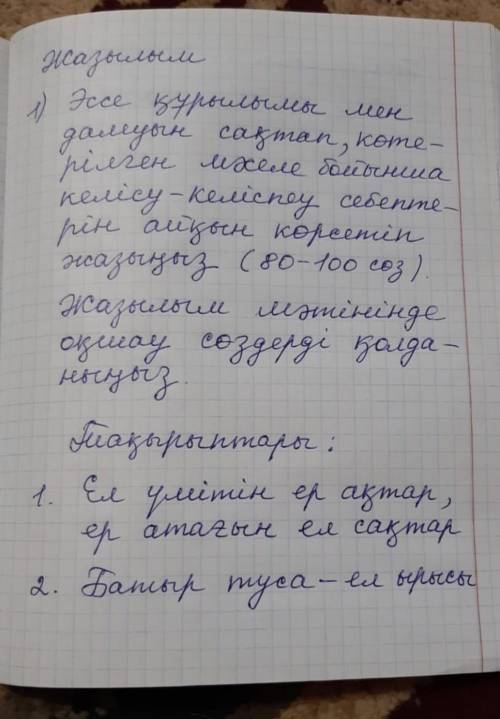 Жазылым
1) Эссе құрылымы мен
дамуын сақтап, көте-
рілген мәселе бойынша
келісу-келіспеу себепте-
рін айқын көрсетіп
жазыңыз (80-100 сөз).
Жазылым мәтінінде
оқшау сөздерді қолда-
ныңыз.
Тақырыптары:
1. Ел үмітін ер ақтар,
ер атағын ел сақтар
2. Батыр туса - ел ырысы